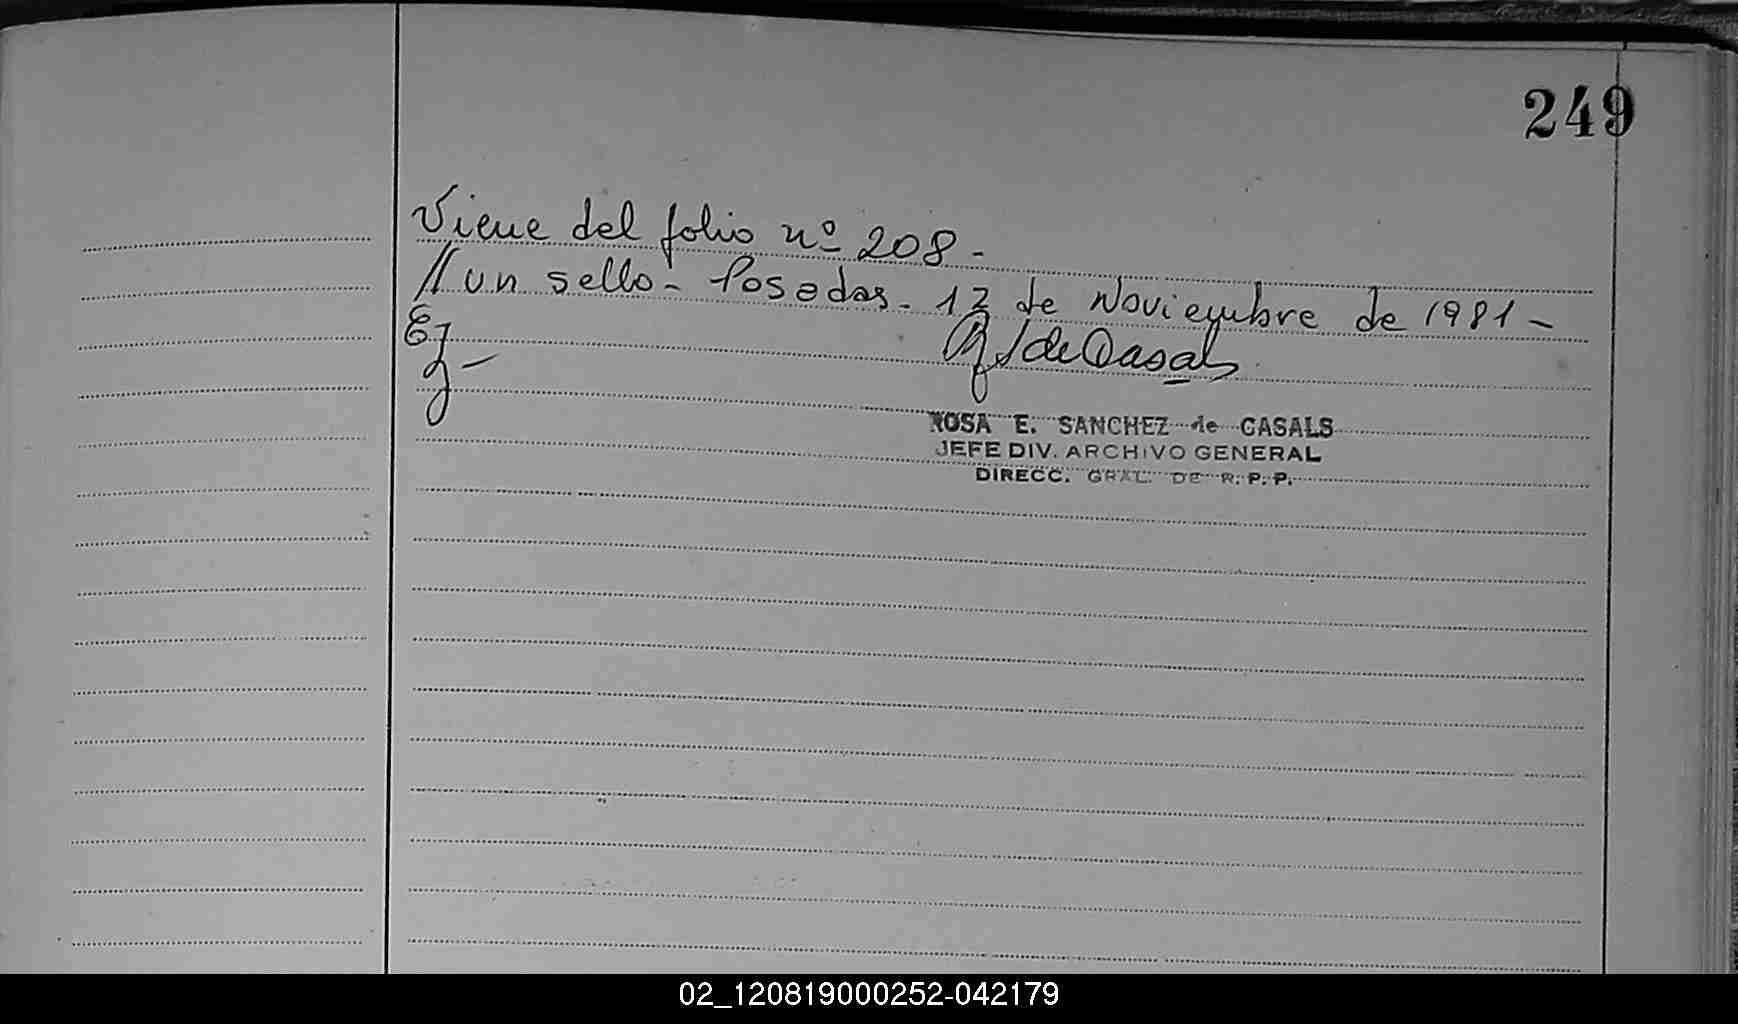 249
Viene del folio nº 208 -
// un sello - Posadas - 12 de Noviembre de 1981 -
de Casals
ROSA E. SANCHEZ de CASALS
JEFE DIV. ARCHIVO GENERAL
DIRECC. GRAL. DE R. P. P.
02_120819000252-042179